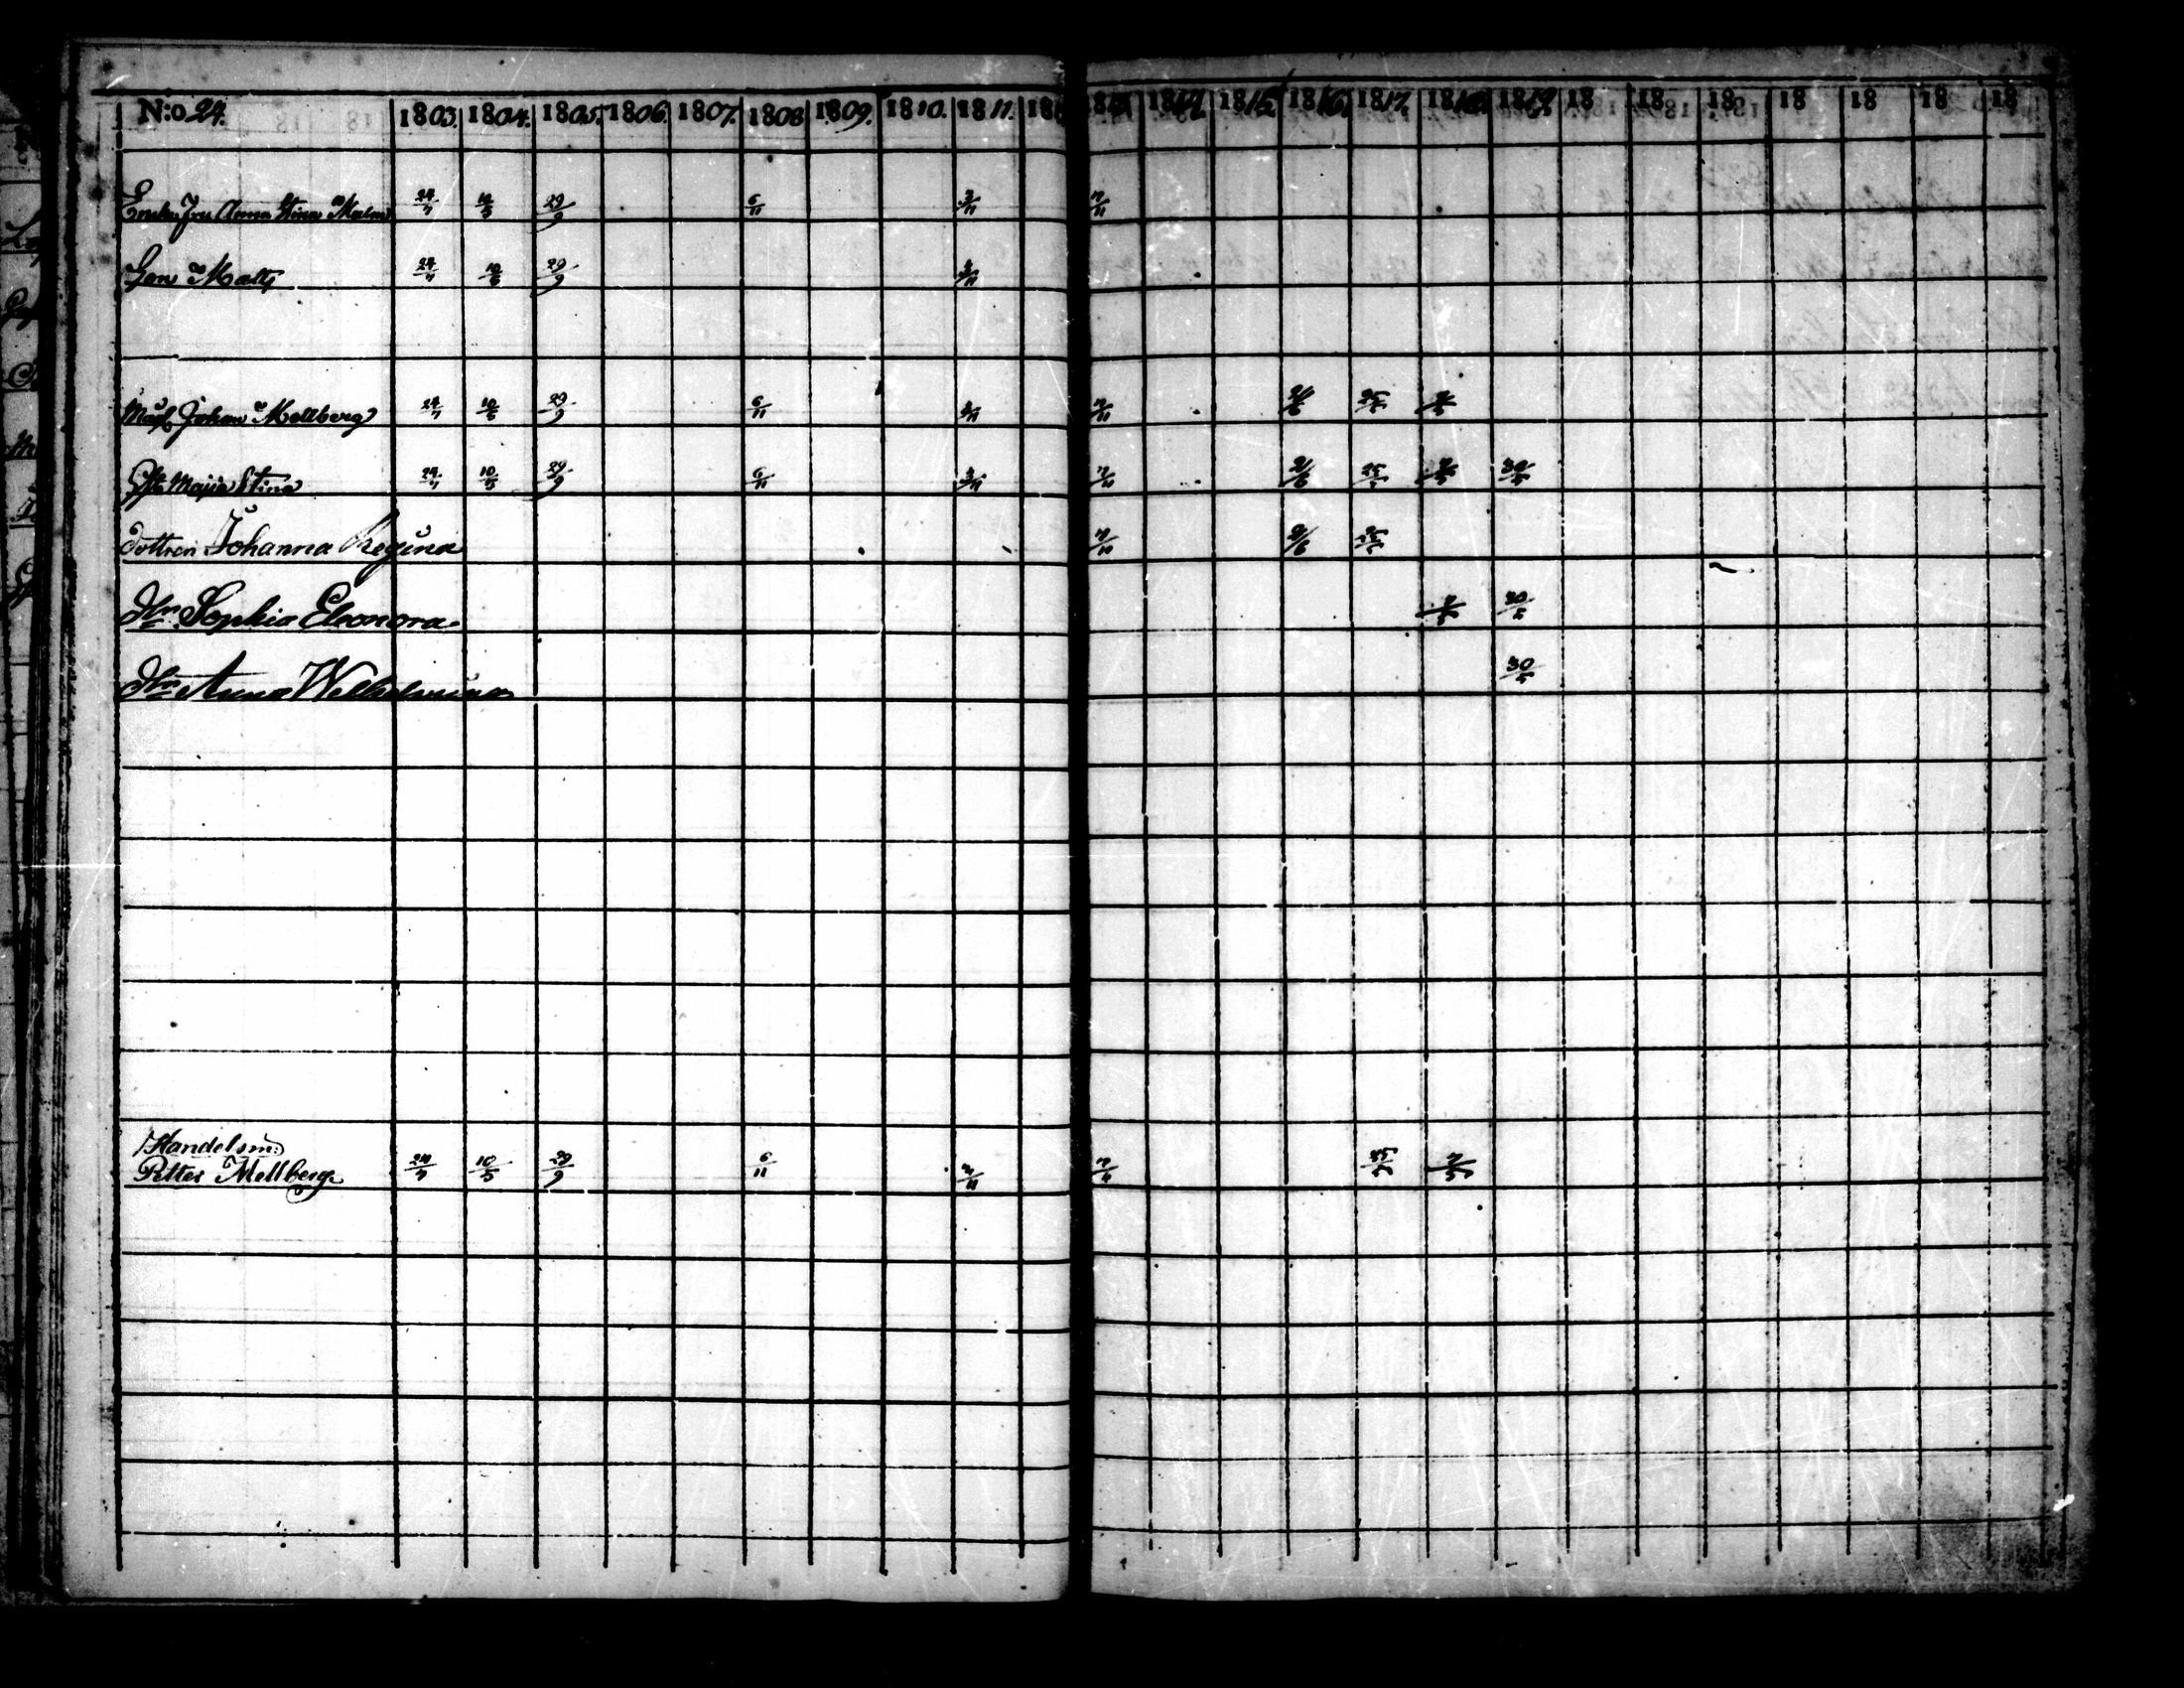 N:o 24. 1803. 1804. 1805. 1806. 1807. 1808 1809. 1810. 1811. 18 1817. 1818. 1819. 18 18 18 18 18 18 18
Enka Fru Anna Stina Malm 24/7 10/5 29/9 6/11 3/11 7/11
Son Matts 24/7 10/5 29/9 3/11
Johan Mellberg 24/7 10/5 29/9 6/11 3/11 7/11 2/6 25/5 7/5
Maja Stina 24/7 10/5 29/9 6/11 3/11 7/11 2/6 25/5 7/5 30/5
dottren Johanna Regina 7/11 2/6 25/5
Sophia Eleonora 7/5 30/5
Anna Wilhelmina 30/5
Handelsm:
Petter Mellberg 24/7 10/5 29/9 6/11 3/11 7/11 25/5 7/5